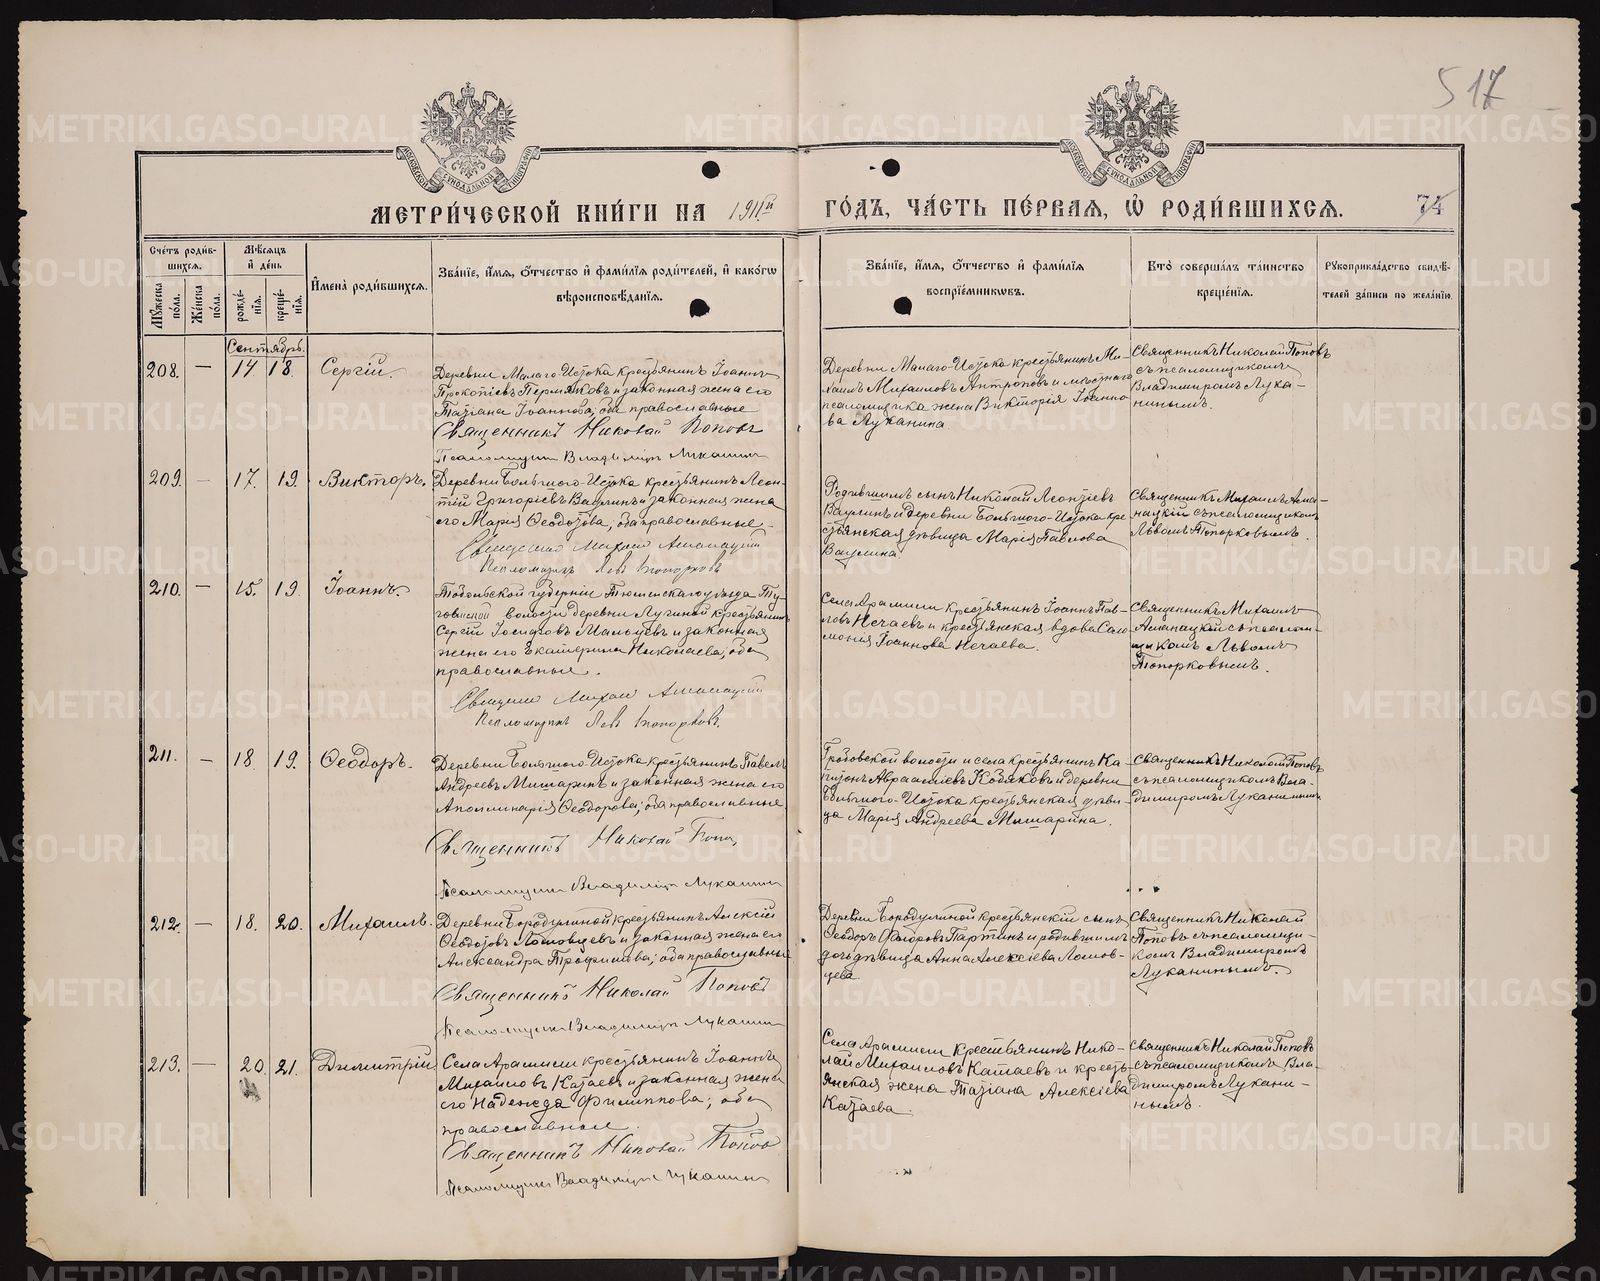 517
МОСКОВСКОЙ СѴНОДАЛЬНОЙ ТИПОГРАФІИ
МОСКОВСКОЙ СѴНОДАЛЬНОЙ ТИПОГРАФІИ
МЕТРИ́ЧЕСКОЙ КНИ́ГИ НА 1911й ГО́ДЪ, ЧА́СТЬ ПЕ́РВАЯ, Ѡ РОДИ́ВШИХСЯ. 74
Сче́тъ роди́в-
шихся.
Мꙋжеска по́ла.
Же́нска по́ла.
Мѣ́сяцъ
и҆ де́нь
рожде́нїя.
креще́нїя.
И҆мена̀ роди́вшихся.
Зва́нїе, и҆́мя, ѻ҆́тчество и҆ фами́лїя роди́телей, и҆ како́гѡ
вѣроисповѣ́данїя.
Зва́нїе, и҆́мя, ѻ҆́тчество и҆ фами́лїя
воспрїе́мникѡвъ.
Кто̀ соверша́лъ та́инство
креще́нїя.
Рꙋкоприкла́дство свидѣ́-
телей за́писи по жела́нїю.
Сентябрь.
208. — 14 18. Сергій.
Деревни Малаго-Истока крестьянинъ Іоаннъ
Прокопіевъ Пермяковъ и законная жена его
Татіана Іоаннова, оба православные
Священникъ Николай Поповъ
Псаломщикъ Владиміръ Луканинъ
Деревни Малаго-Истока крестьянинъ Ми-
хаилъ Михаиловъ Антроповъ и мѣстнаго
псаломщика жена Викторія Іоанно-
ва Луканина
Священникъ Николай Поповъ
съ псаломщикомъ
Владиміромъ Лука-
нинымъ.
209. — 17. 19. Викторъ.
Деревни Большого-Истока крестьянинъ Леон-
тій Григоріевъ Ваулинъ и законная жена
его Марія Ѳеодотова, оба православные.
Священникъ Михаил
Псаломщикъ Левъ Топорковъ
Родившимъ сынъ Николай Леонтіевъ
Ваулинъ и деревни Большого-Истока кре-
стьянская дѣвица Марія Павлова
Ваулина
Священникъ Михаилъ
съ псаломщикомъ
Львомъ Топорковымъ.
210. — 15. 19. Іоаннъ.
Тобольской губерніи Тюменскаго уѣзда Ту-
волости деревни крестьянинъ
Сергій Іосифовъ Мальцевъ и законная
жена его Екатерина Николаева, оба
православные.
Священникъ Михаил
Псаломщикъ Левъ Топорковъ.
Села Арамили крестьянинъ Іоаннъ Пав-
ловъ Нечаевъ и крестьянская вдова Соло-
монія Іоаннова Нечаева.
Священникъ Михаилъ
съ псалом-
щикомъ Львомъ
Топорковымъ.
211. — 18. 19. Ѳеодоръ.
Деревни Большого-Истока крестьянинъ Павелъ
Андреевъ Мишаринъ и законная жена его
Аполлинарія Ѳеодорова; оба православные
Священникъ Николай Попов
Псаломщикъ Владиміръ Луканинъ
волости и села крестьянинъ Ка-
питонъ Авраамiевъ и деревни
Большого-Истока крестьянская дѣви-
ца Марія Андреева Мишарина.
Священникъ Николай Поповъ
съ псаломщикомъ Вла-
диміромъ Луканинымъ
212. — 18. 20. Михаилъ.
Деревни Бородулиной крестьянинъ Алексій
Ѳеодотовъ Ломовцевъ и законная жена его
Александра Трофимова; оба православные
Священникъ Николай Поповъ
Псаломщикъ Владиміръ Луканинъ
Деревни Бородулиной крестьянскій сынъ
Ѳеодоръ Партинъ и родившимъ
дочь дѣвица Анна Алексіева Ломов-
цева.
Священникъ Николай
Поповъ съ псаломщи-
комъ Владиміромъ
Луканинымъ.
213. — 20. 21. Димитрій
Села Арамили крестьянинъ Іоаннъ
Михаиловъ Катаевъ и законная жена
его Надежда Филиппова; оба
православные.
Священникъ Николай Попов
Псаломщикъ Владиміръ Луканинъ
Села Арамили крестьянинъ Нико-
лай Михаиловъ Катаевъ и кресть-
янская жена Татіана Алексіева
Катаева.
Священникъ Николай Поповъ
съ псаломщикомъ Вла-
диміромъ Лукани-
нымъ.
METRIKI.GASO-URAL.RU